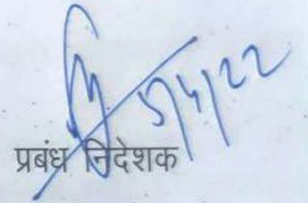 5/4/22
प्रबंध निदेशक